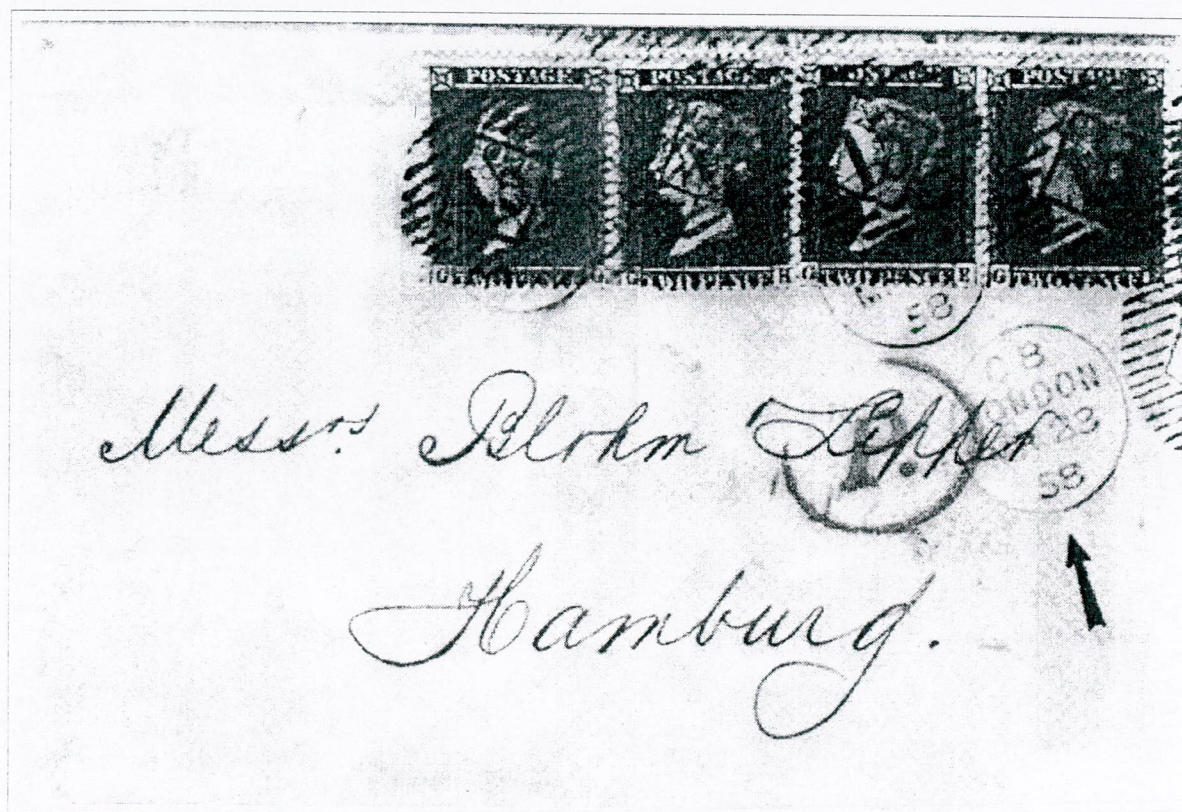 POSTAGE POSTAGE POSTAGE POSTAGE
G G G TWO PENCE H G TWO PENCE G TWO PENCE
58
C B
LONDON
23
58
P.
Messrs. Blohm Lepper
Hamburg.